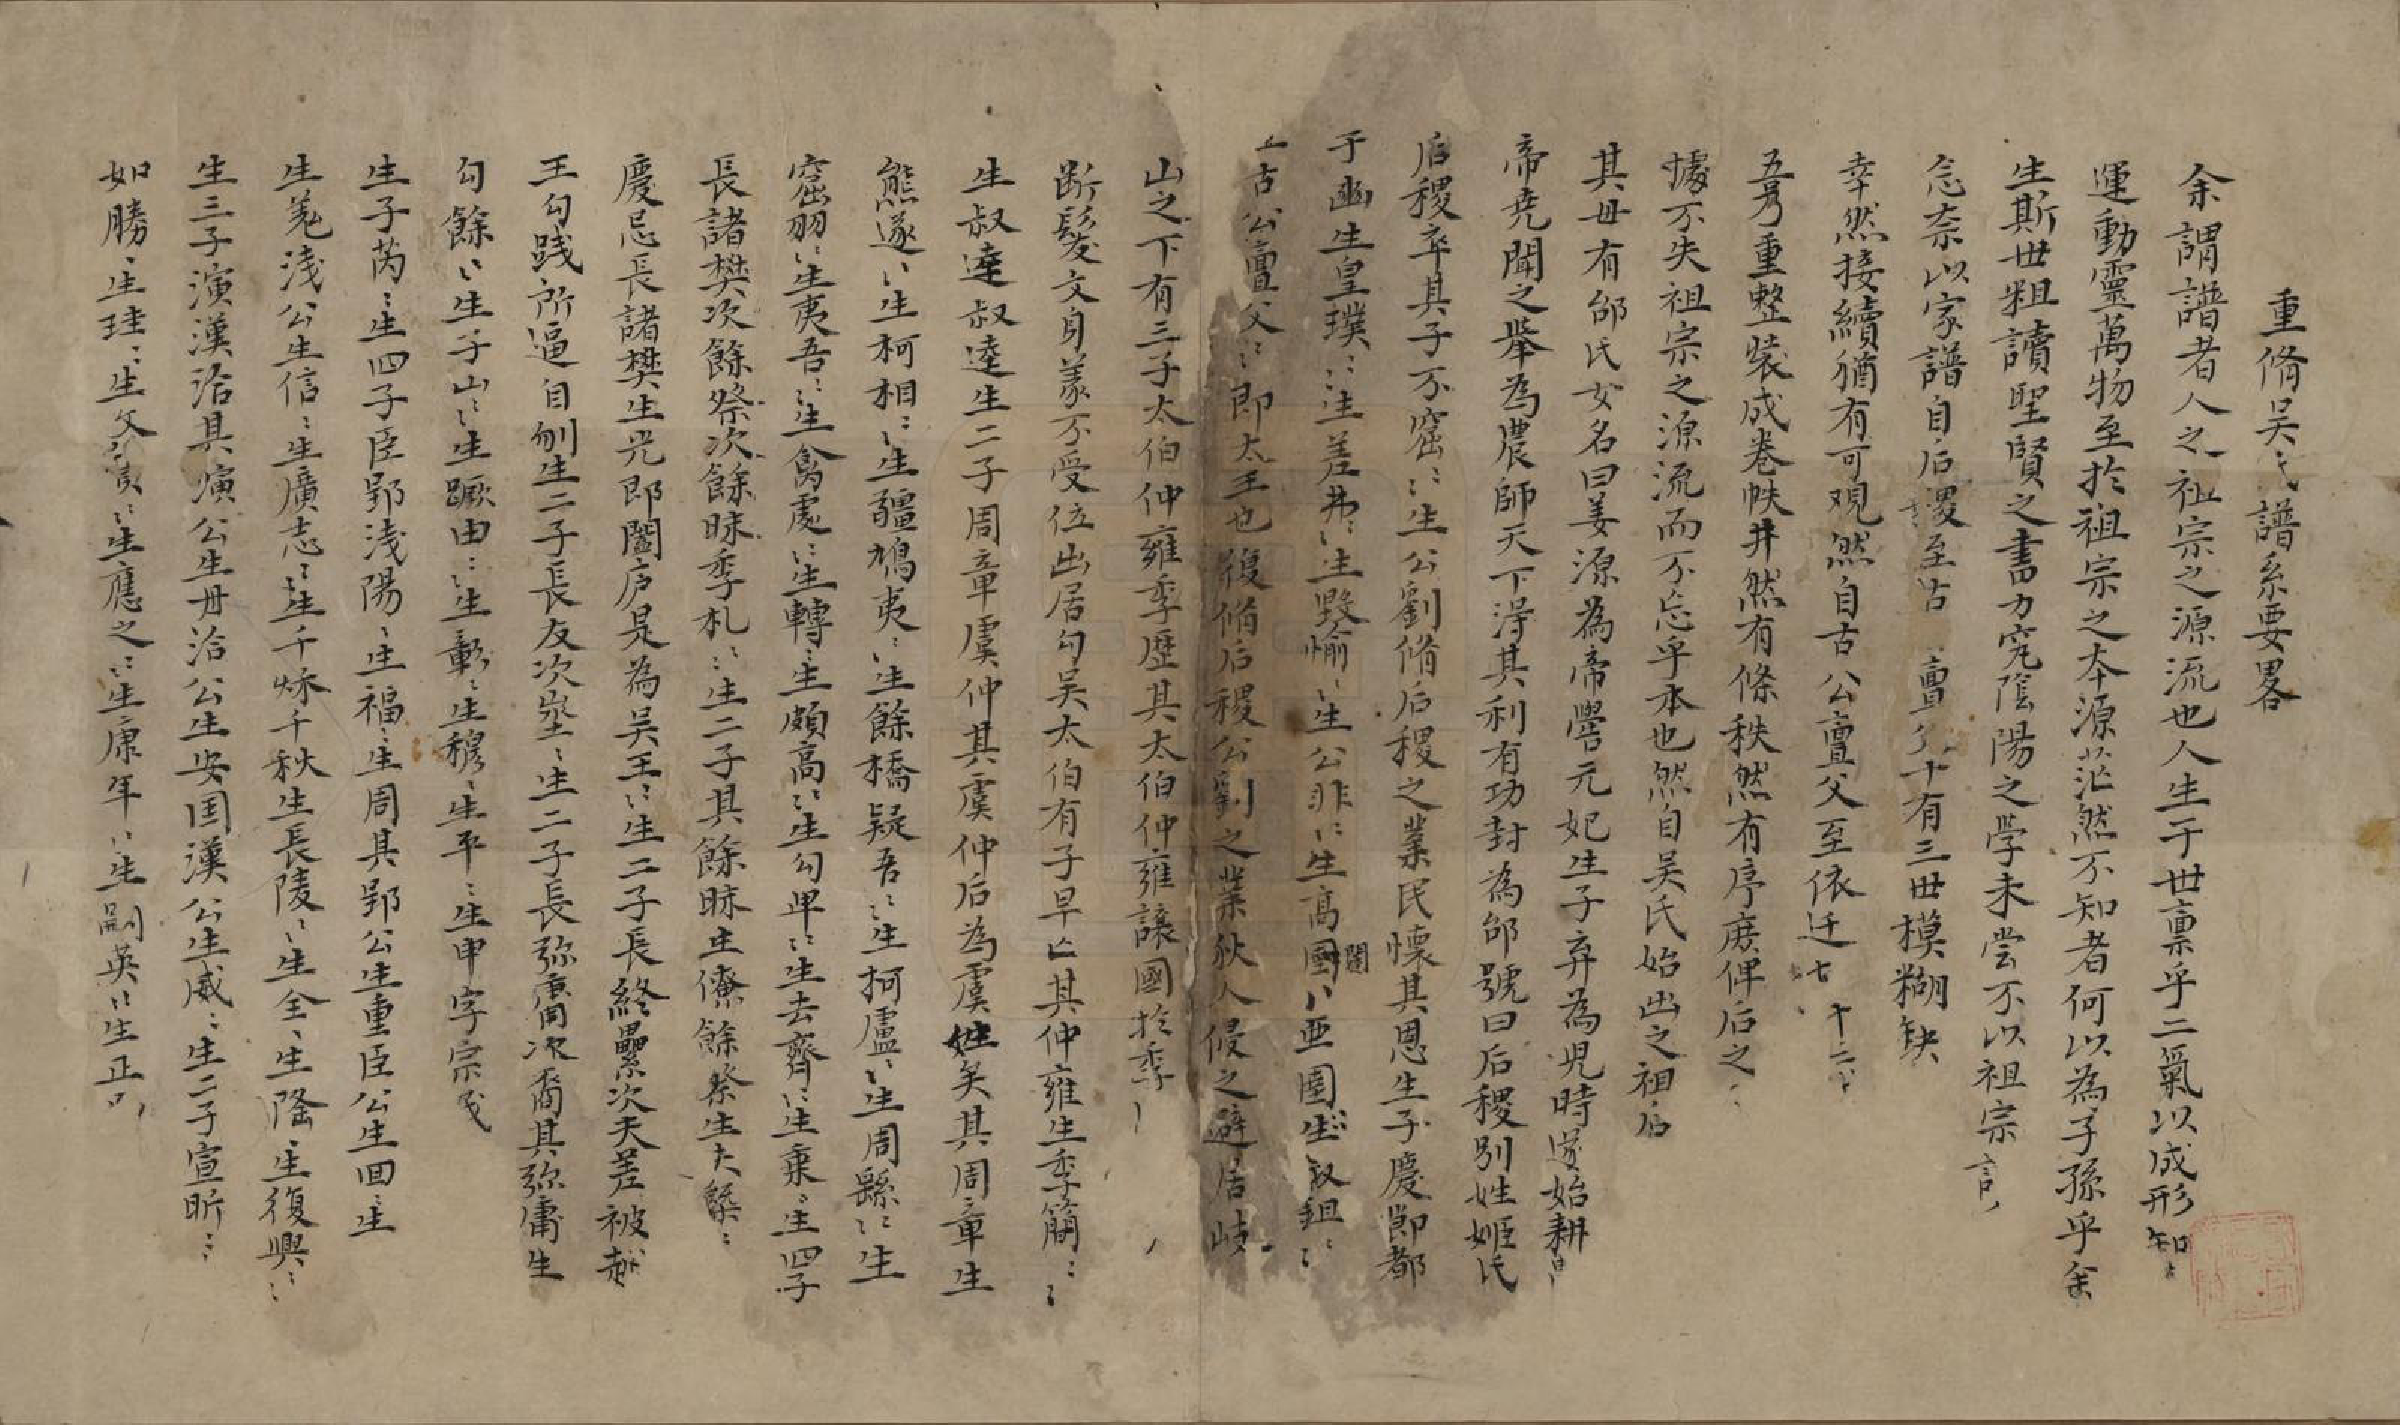 重脩吴氏譜系要畧
余謂譜者人之祖宗之源流也人生于世禀乎二氣以成形知
運動靈萬物至於祖宗之本源茫然不知者何以為子孫乎余
生斯世粗讀聖賢之書力究陰陽之学未尝不以祖宗言
念奈以家譜自后稷至古亶父十有三世模糊缺
幸然接續猶有可观然自古公亶父至依迁七十二
五乃重整裝成卷帙井然有條秩然有序庶俾后之
據不失祖宗之源流而不忘乎本也然自吴氏始出之祖后
其毋有邰氏女名曰姜源為帝嚳元妃生子弃為児時遂始耕
帝尭聞之舉為農師天下淂其利有功封為邰號曰后稷别姓姬氏
后稷卒其子不窋〻生公劉脩后稷之業民懷其恩生子慶節都
于豳生皇璞〻生差弗〻生毀愉〻生公非〻生高圉〻亚圉生叔組〻
古公亶父〻即太王也復脩后稷公劉之業狄人侵之避居岐
山之下有三子太伯仲雍季歴其太伯仲雍讓國於季
断髮文身義不受位出居勾吴太伯有子早亡其仲雍生季簡〻
生叔達叔逹生二子周章虞仲其虞仲后為虞姓矣其周章生
熊遂〻生柯相〻生彊鳩夷〻生餘橋疑吾〻生柯盧〻生周繇〻生
窟羽〻生夷吾〻生禽處〻生轉〻生頗高〻生勾卑〻生去齊〻生乗〻生四子
長諸樊次餘祭次餘昧季札〻生二子其餘昧生僚餘祭生夫㮣〻
慶忌長諸樊生光即闔庐是為吴王〻生二子長終纍次夫差被越
王勾践所逼自刎生二子長友次㟧〻生二子長弥庸次裔其弥庸生
勾餘〻生子山〻生蹶由〻生彰〻生穆〻生平〻生申字宗
生子芮〻生四子臣郢淺陽〻生福〻生周其郢公生重臣公生回〻生
生羌淺公生信〻生廣志〻生千秋千秋生長陵〻生全〻生隆〻生復興〻
生三子演漢治其演公生毋治公生安囯漢公生威〻生二子宣昕〻
如勝〻生珪〻生〻生應之〻生康年〻生嗣英〻生正